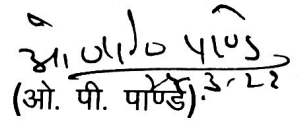 ओ० पी० पाण्डे
.3.22
(ओ. पी. पाण्डे)